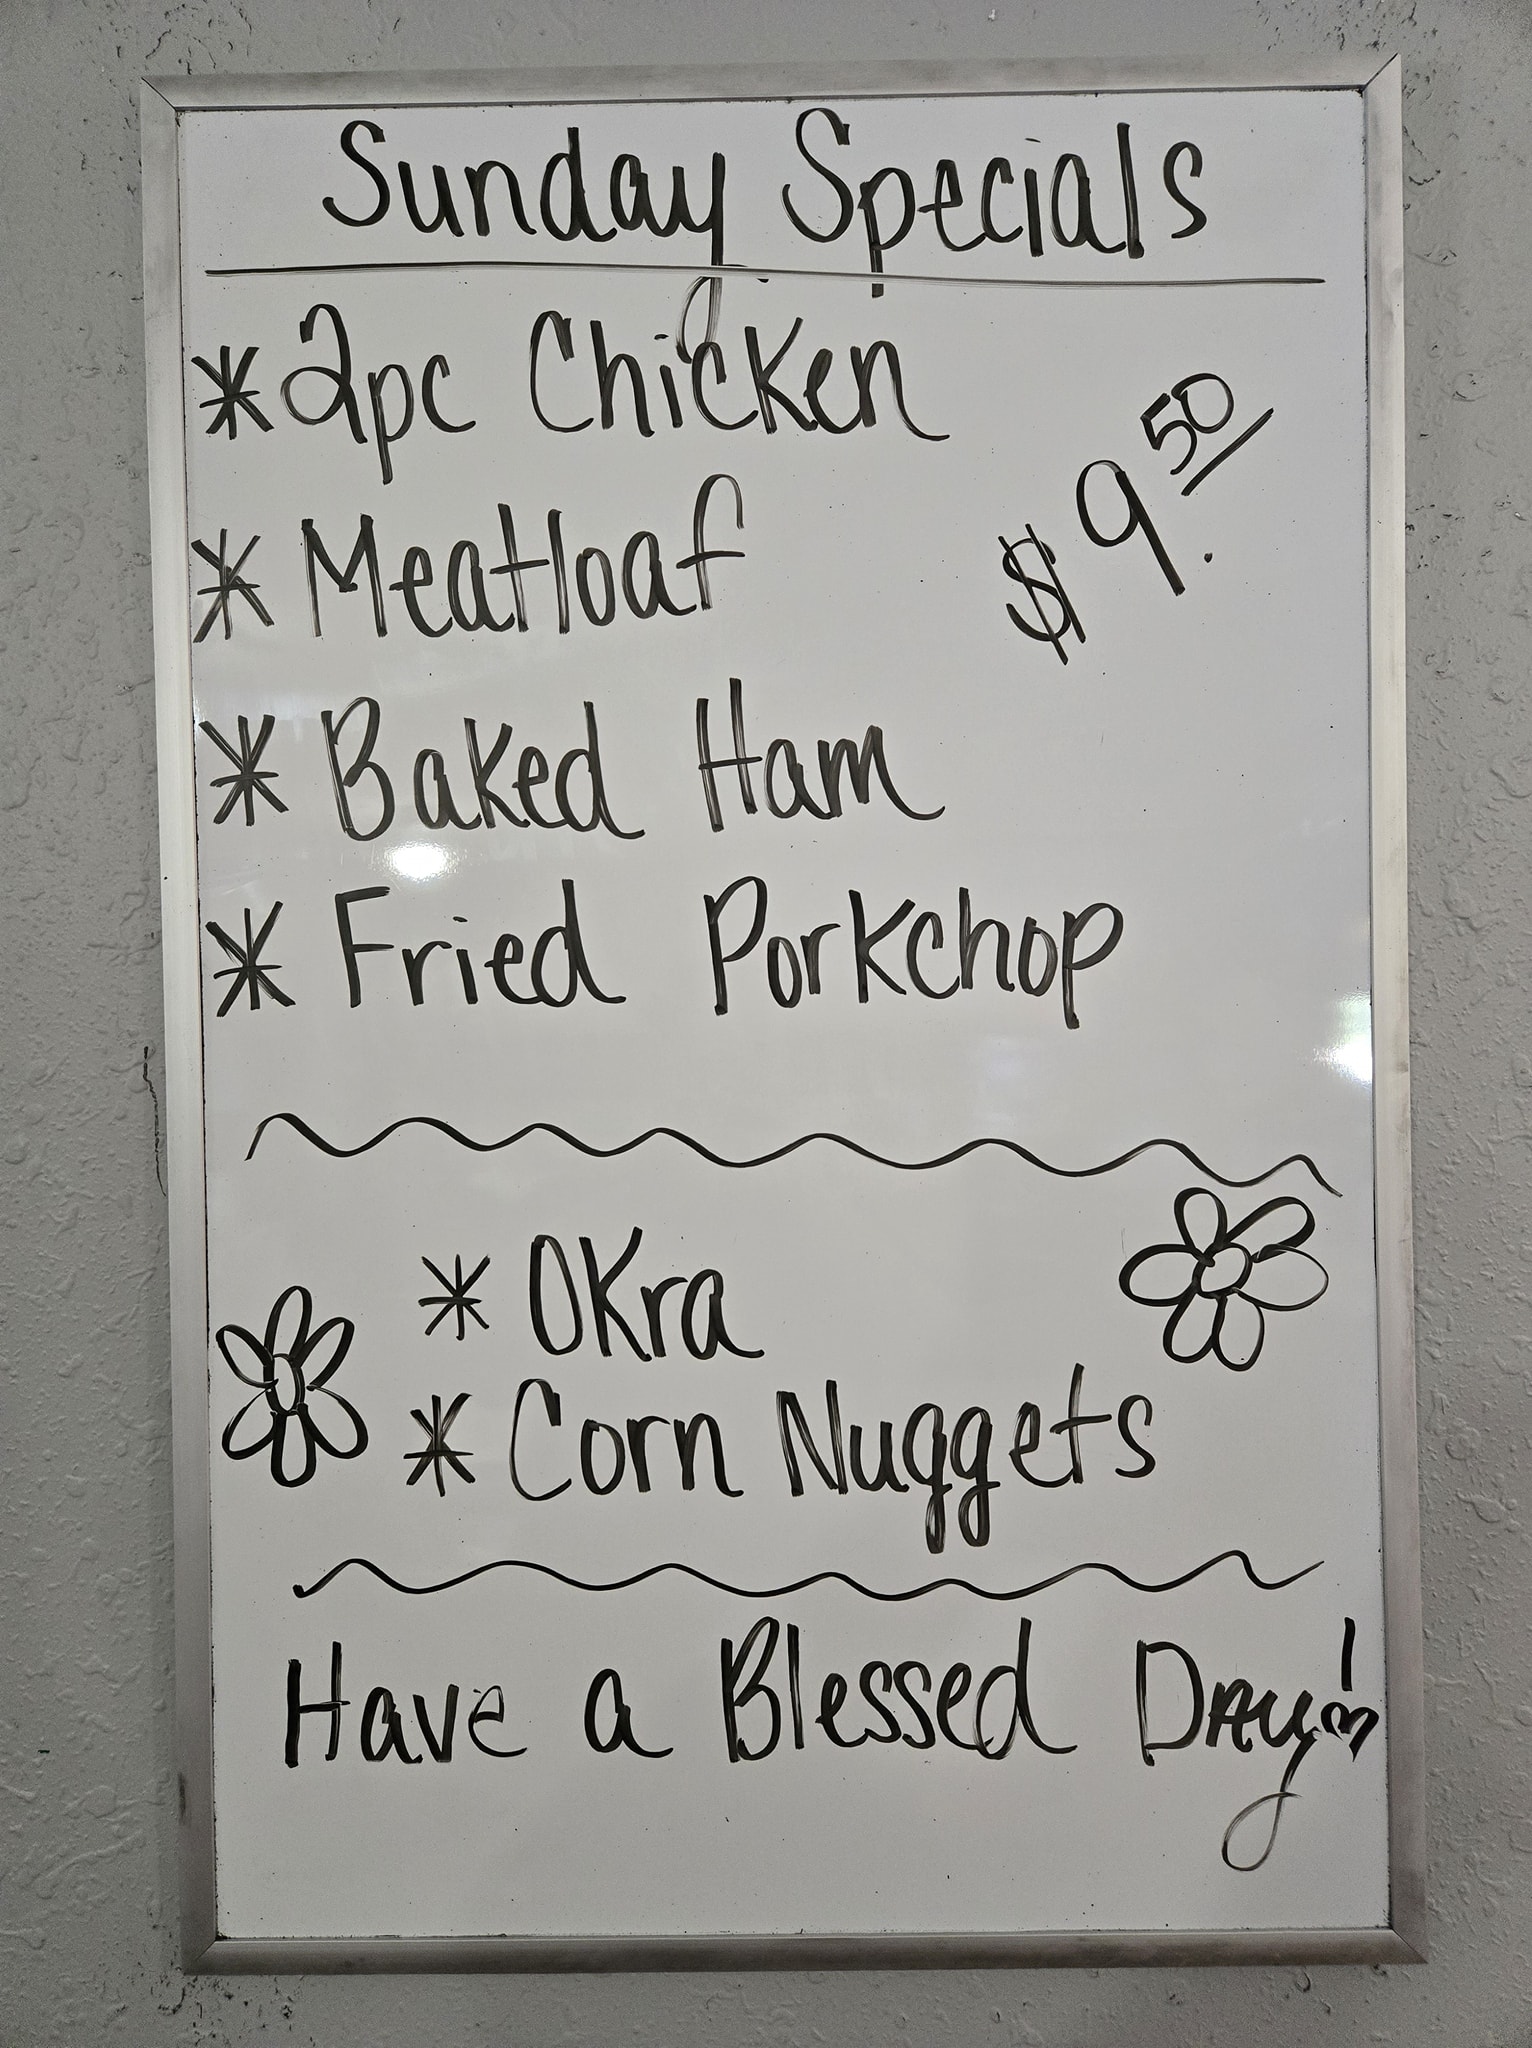 Sunday Specials
* 2pc Chicken
$9.50
* Meatloaf
* Baked Ham
* Fried Porkchop
* Okra
* Corn Nuggets
Have a Blessed Day!